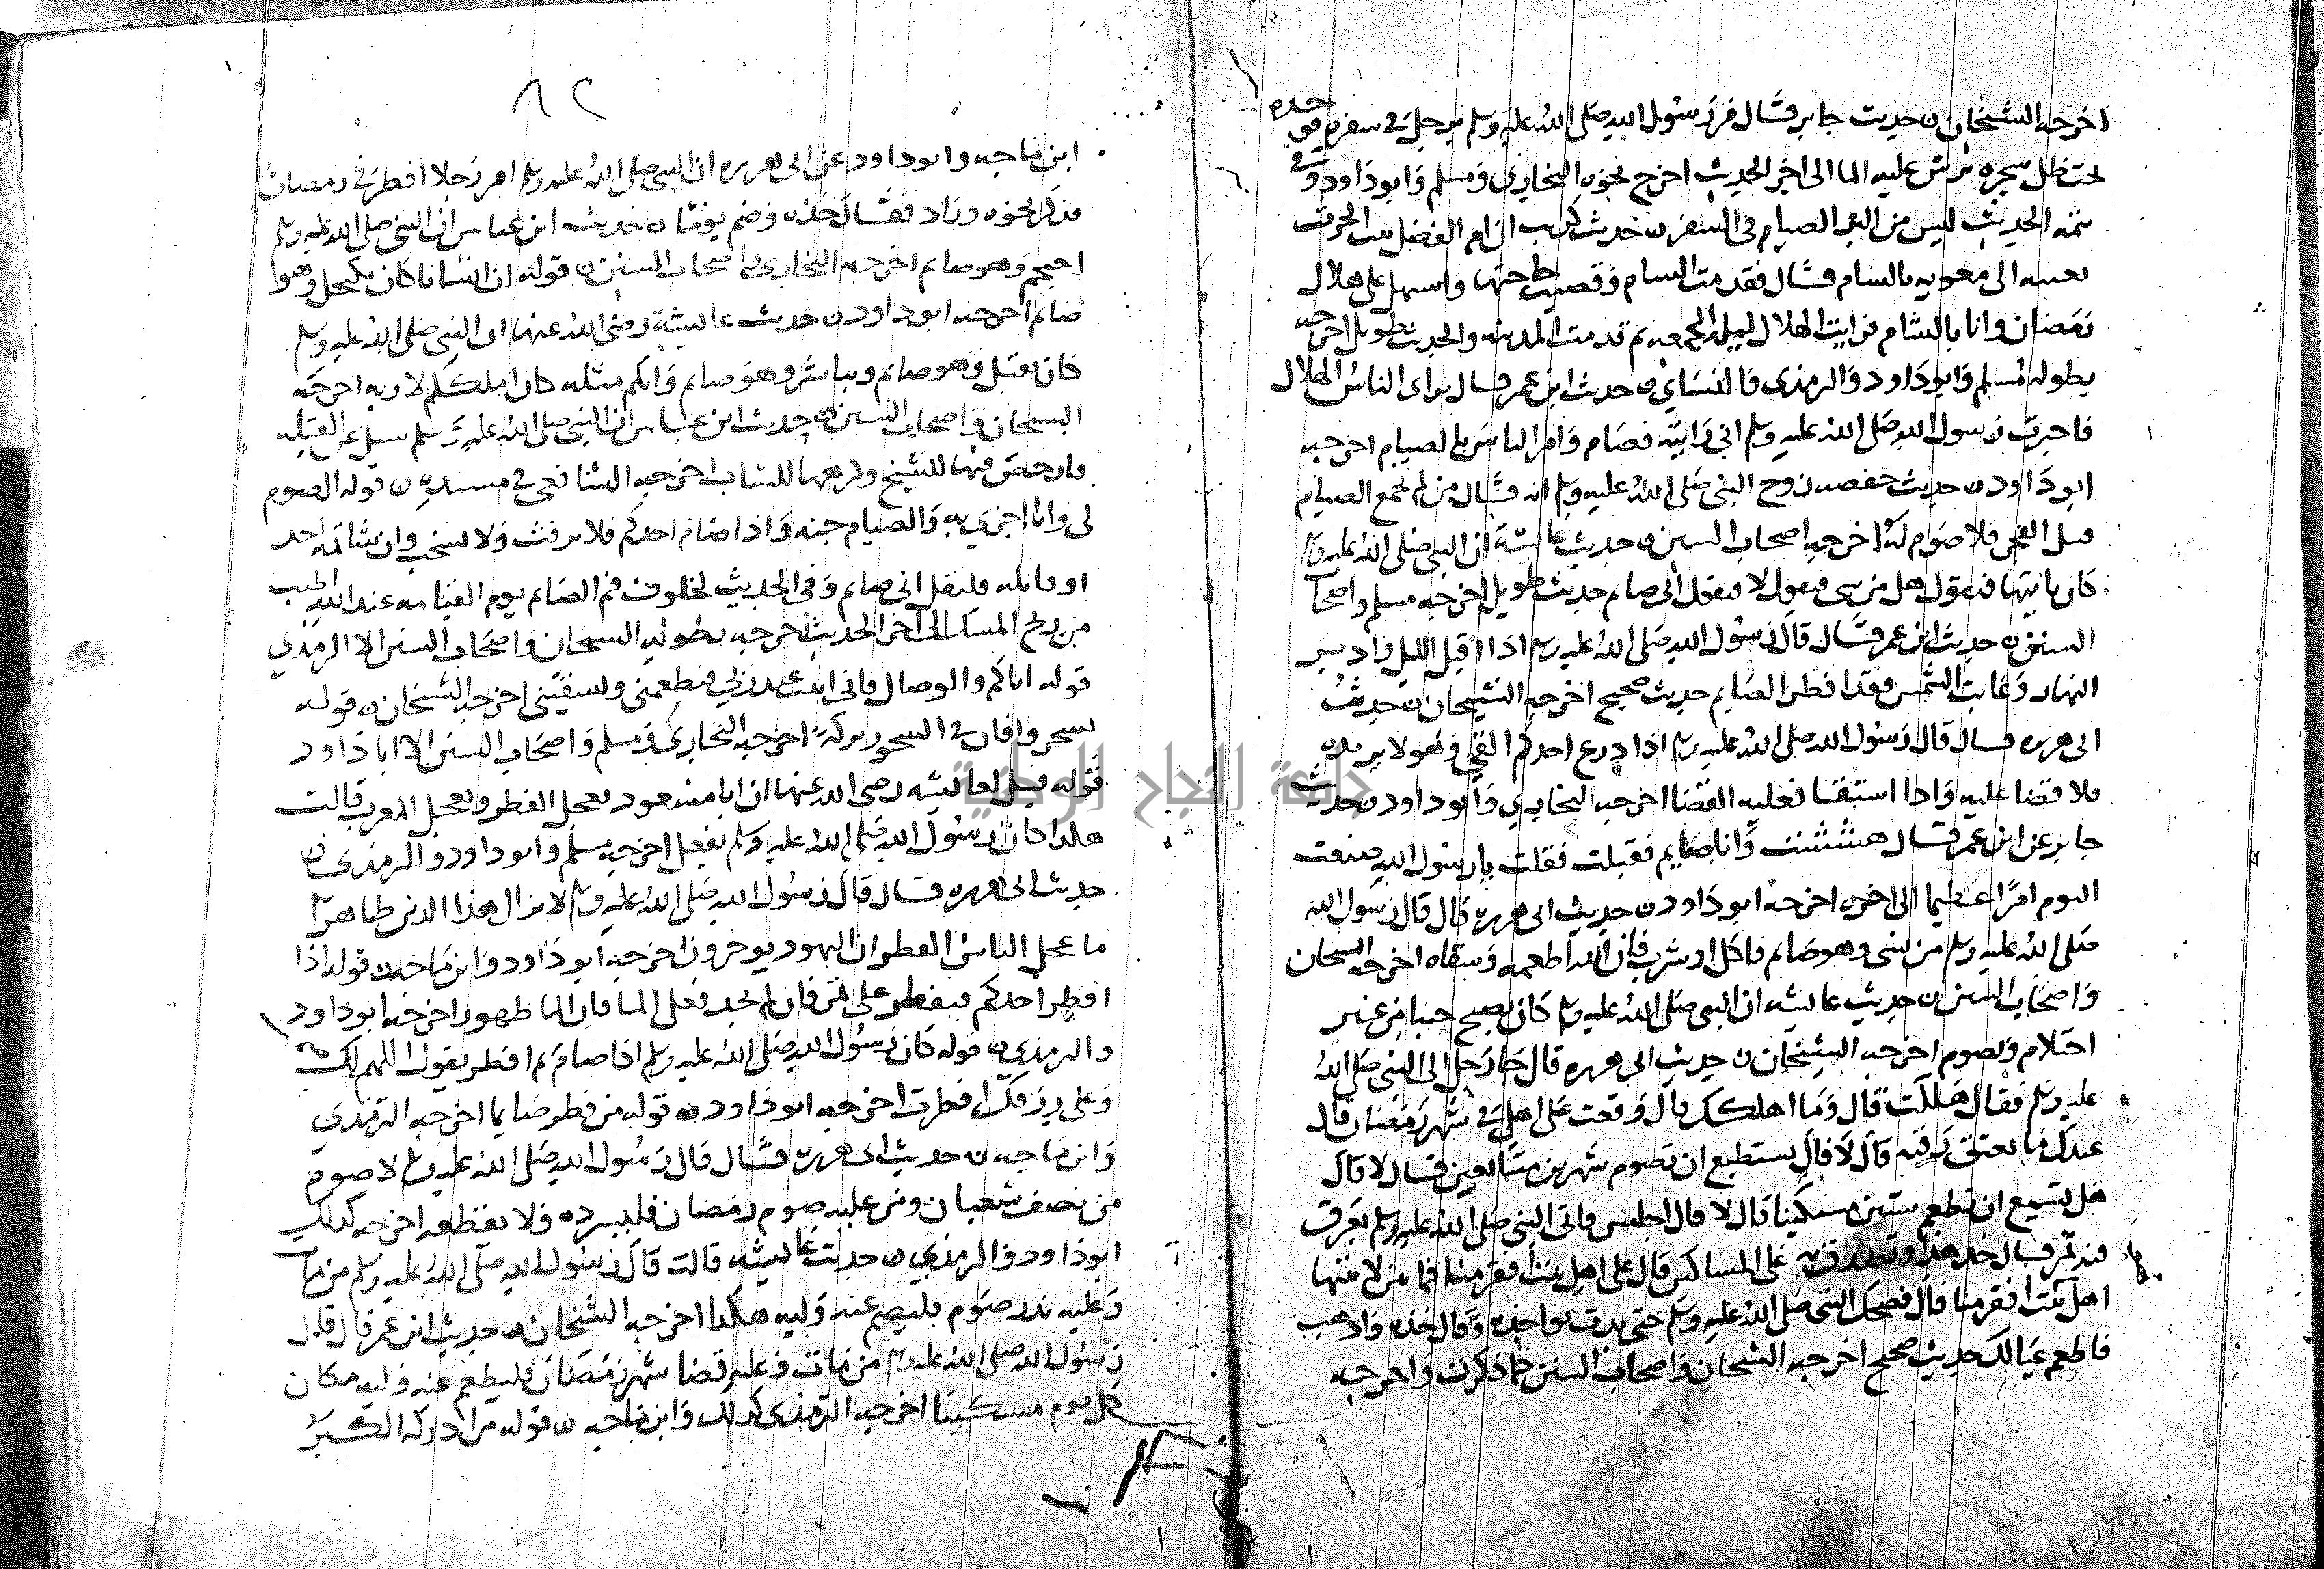 اخرجه الشيخان ن حديث جابر قال مر رسول الله صلى الله عليه وسلم برجل في سفره في حده
تحت ظل سجره يرش عليه الما الى اخر الحديث اخرج نحوه البخاري ومسلم وابوداود وفي
تتمه الحديث ليس من البر الصيام في السفر ن حديث كريب ان ام الفضل بنت الحرث
بعثته الى معويه بالسام قال فقدمت السام وقضيت حاجتها واستهل على هلال
رمضان وانا بالشام فرايت الهلال ليله الجمعه ثم قدمت المدينه والحديث بطوله اخرجه
بطوله مسلم وابوداود والترمذي والنسائي ن حديث ابن عمر قال تراى الناس الهلال
فاخبرت رسول الله صلى الله عليه وسلم اني رايته فصام وامر الناس بالصيام اخرجه
ابوداود ن حديث حفصه زوج النبي صلى الله عليه وسلم انه قال من لم يجمع الصيام
قبل الفجر فلا صوم له اخرجه اصحاب السنن ن حديث عائشة ان النبي صلى الله عليه وسلم
كان ياتيها فيقول هل من شي فيقول لا فيقول اني صايم حديث طويل اخرجه مسلم واصحاب
السنن ن حديث ابن عمر قال قال رسول الله صلى الله عليه وسلم اذا اقبل الليل وادبر
النهار وغابت الشمس فقد افطر الصايم حديث صحيح اخرجه الشيخان ن حديث
ابي هريره قال قال رسول الله صلى الله عليه وسلم اذا ذرع احدكم القي وهو لا يريده
فلا قضا عليه واذا استقا فعليه القضا اخرجه البخاري وابوداود ن حديث
جابر عن ابن عمر قال هششت وانا صايم فقبلت فقلت يا رسول الله صنعت
اليوم امرًا عظيما الى اخره اخرجه ابوداود ن حديث ابي هريره قال قال رسول الله
صلى الله عليه وسلم من نسي وهو صايم فاكل او شرب فان الله اطعمه وسقاه اخرجه الشيخان
واصحاب السنن ن حديث عائشه ان النبي صلى الله عليه وسلم كان يصبح جنبا من غير
احتلام ويصوم اخرجه الشيخان ن حديث ابي هريره قال جا رجل الى النبي صلى الله
عليه وسلم فقال هلكت قال وما اهلكك قال وقعت على اهلي في شهر رمضان قال
عندك ما تعتق رقبه قال لا قال تستطيع ان تصوم شهرين متتابعين قال لا قال
هل تستيع ان تطعم ستين مسكينا قال لا قال اجلس فاتى النبي صلى الله عليه وسلم بعرق
فيه تمر فقال خذ هذا وتصدق به على المساكين قال على اهل بيت افقر منا فما بين لابتيها
اهل بيت افقر منا قال فضحك النبي صلى الله عليه وسلم حتى بدت نواجذه وقال خذه واذهب
فاطعم عيالك حديث صحيح اخرجه الشيخان واصحاب السنن كما ذكرت واخرجه
٨٢
ابن ماجه وابوداود عن ابي هريره ان النبي صلى الله عليه وسلم امر رجلا افطر في رمضان
فذكر نحوه وزاد فقال خذه وصم يوما ن حديث ابن عباس ان النبي صلى الله عليه وسلم
احتجم وهو صايم اخرجه البخاري واصحاب السنن ن قوله ان انسا كان يكتحل وهو
صايم اخرجه ابوداود ن حديث عائيشة رضي الله عنها ان النبي صلى الله عليه وسلم
كان يقبل وهو صايم ويباشر وهو صايم وايكم مثله كان املككم لاربه اخرجه
الشيخان واصحاب السنن ن حديث ابن عباس ان النبي صلى الله عليه وسلم سيل عن القبله
فارخص فيها للشيخ وكرهها للشاب اخرجه الشافعي في مسنده ن قوله الصوم
لي وانا اجزي به والصيام جنه واذا صام احدكم فلا يرفث ولا يسخب وان شاتمه احد
او قاتله فليقل اني صايم وفي الحديث لخلوف فم الصايم يوم القيامه عند الله اطيب
من ريح المسك الى اخر الحديث اخرجه بطوله الشيخان واصحاب السنن الا الترمذي
قوله اياكم والوصال فاني ابيت عند ربي فيطعمني ويسقيني اخرجه الشيخان ن قوله
تسحروا فان في السحور بركة اخرجه البخاري ومسلم واصحاب السنن الا ابا داود
قوله قيل لعائيشه رضي الله عنها ان ابا مسعود يعجل الفطر ويعجل المغرب قالت
هكذا كان رسول الله صلى الله عليه وسلم يفعل اخرجه مسلم وابوداود والترمذي ن
حديث ابي هريره قال قال رسول الله صلى الله عليه وسلم لا يزال هذا الدين ظاهرًا
ما عجل الناس الفطر ان اليهود يوخرون اخرجه ابوداود وابن ماجه ن قوله اذا
افطر احدكم فيفطر على تمر فان لم يجد فعلى الما فان الما طهور اخرجه ابوداود
والترمذي ن قوله كان رسول الله صلى الله عليه وسلم اذا صام ثم افطر يقول اللهم لك صمت
وعلى رزقك افطرت اخرجه ابوداود ن قوله من فطر صايما اخرجه الترمذي
وابن ماجه ن حديث ابي هريره قال قال رسول الله صلى الله عليه وسلم لا صوم
من نصف شعبان ومن عليه صوم رمضان فليسرده ولا يقطعه اخرجه كذلك
ابوداود والترمذي ن حديث عائيشه قالت قال رسول الله صلى الله عليه وسلم من مات
وعليه نذر صوم فليصم عنه وليه هكذا اخرجه الشيخان ن حديث ابن عمر قال قال
رسول الله صلى الله عليه وسلم من مات وعليه قضا شهر رمضان فليطعم عنه وليه مكان
كل يوم مسكينا اخرجه الترمذي كذلك وابن ماجه ن قوله من ادركه الكبر
جامعة النجاح الوطنية